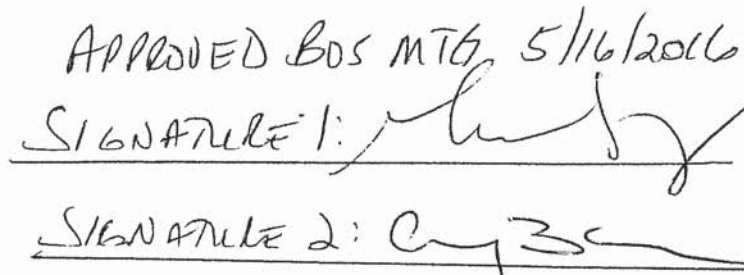 APPROVED BOS MTG 5/16/2016
SIGNATURE 1:
SIGNATURE 2: